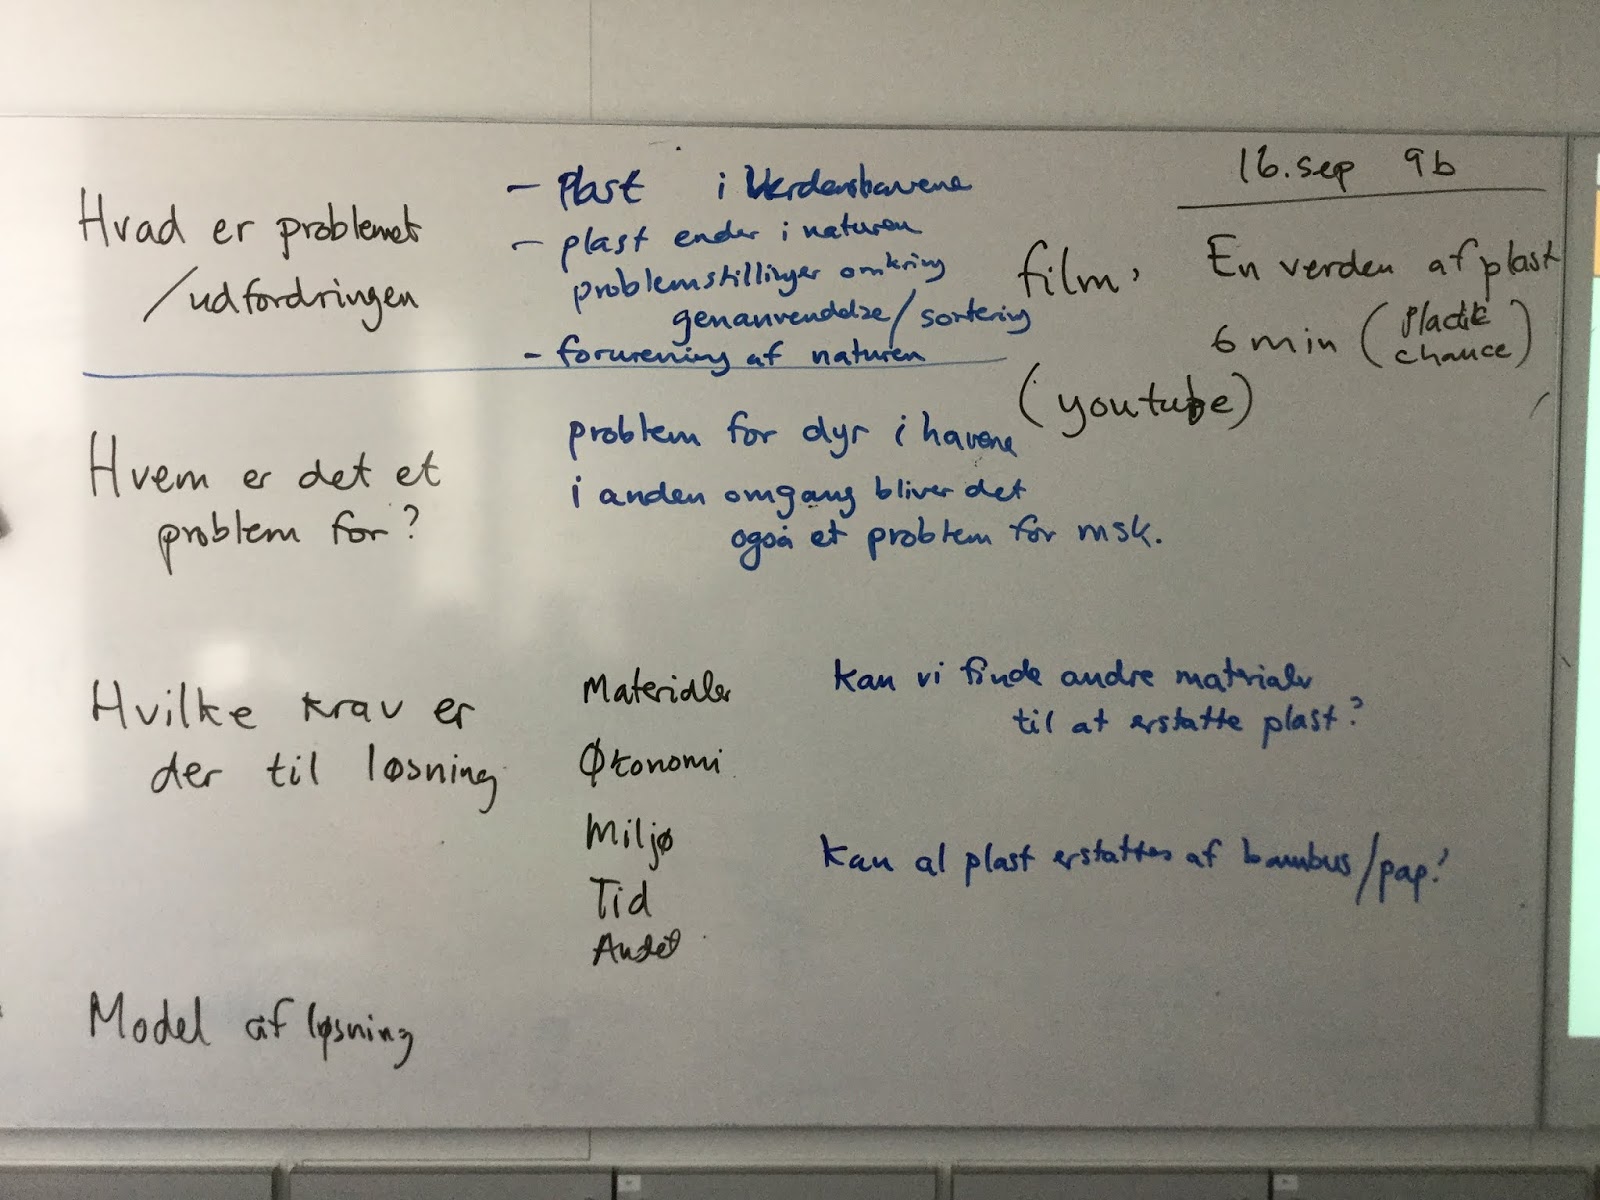 16.sep 9b
Hvad er problemet
/udfordringen
- Plast i Verdenshavene
- plast ender i naturen
problemstillinger omkring
genanvendelse/sortering
- forurening af naturen
film: En verden af plast
6 min (Plastik
chance)
(youtube)
Hvem er det et
problem for?
problem for dyr i havene
i anden omgang bliver det
også et problem for msk.
Hvilke krav er
der til løsning
Materialer
Økonomi
Miljø
Tid
Andet
kan vi finde andre materialer
til at erstatte plast?
kan al plast erstattes af bambus/pap?
Model af løsning